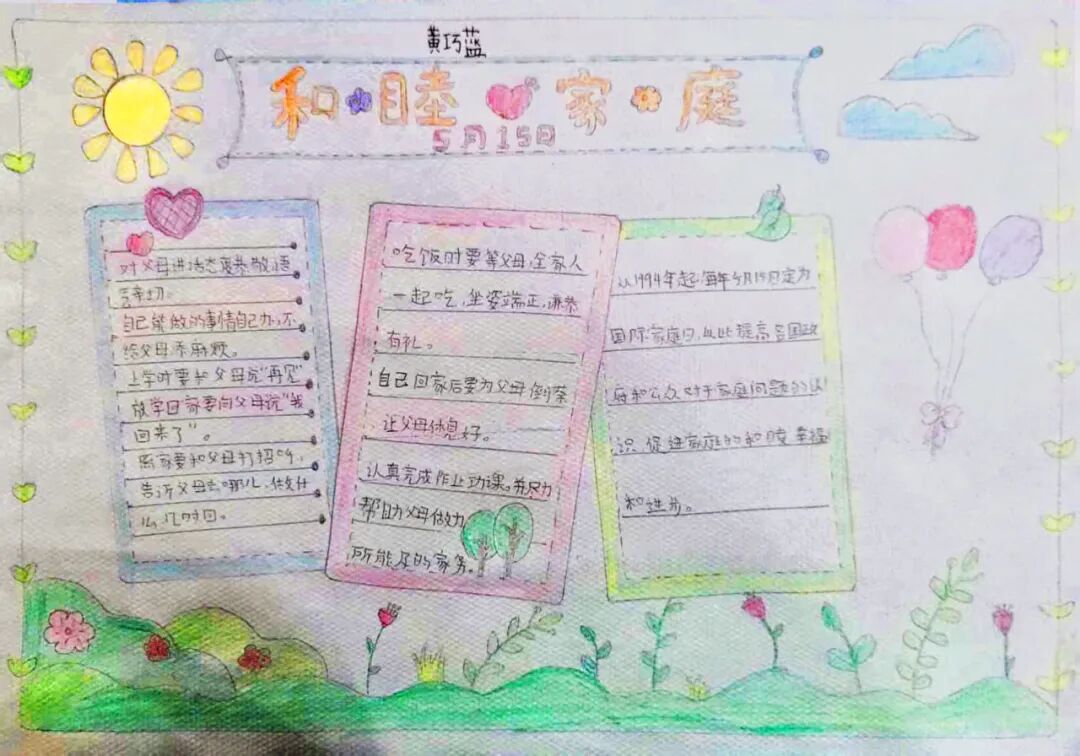 黄巧蓝
和睦家庭
5月15日
对父母讲话态度恭敬,语
言亲切。
自己能做的事情自己办,不
给父母添麻烦。
上学时要和父母说"再见"
放学回家要向父母说"我
回来了"。
离家要和父母打招呼,
告诉父母去哪儿,做什
么,几时回。
吃饭时要等父母,全家人
一起吃,坐姿端正,谦恭
有礼。
自己回家后要为父母倒茶
让父母休息好。
认真完成作业功课。并尽力
帮助父母做力
所能及的家务。
从1994年起,每年5月15日定为
国际家庭日,以此提高各国政
府和公众对于家庭问题的认
识,促进家庭的和睦,幸福
和进步。